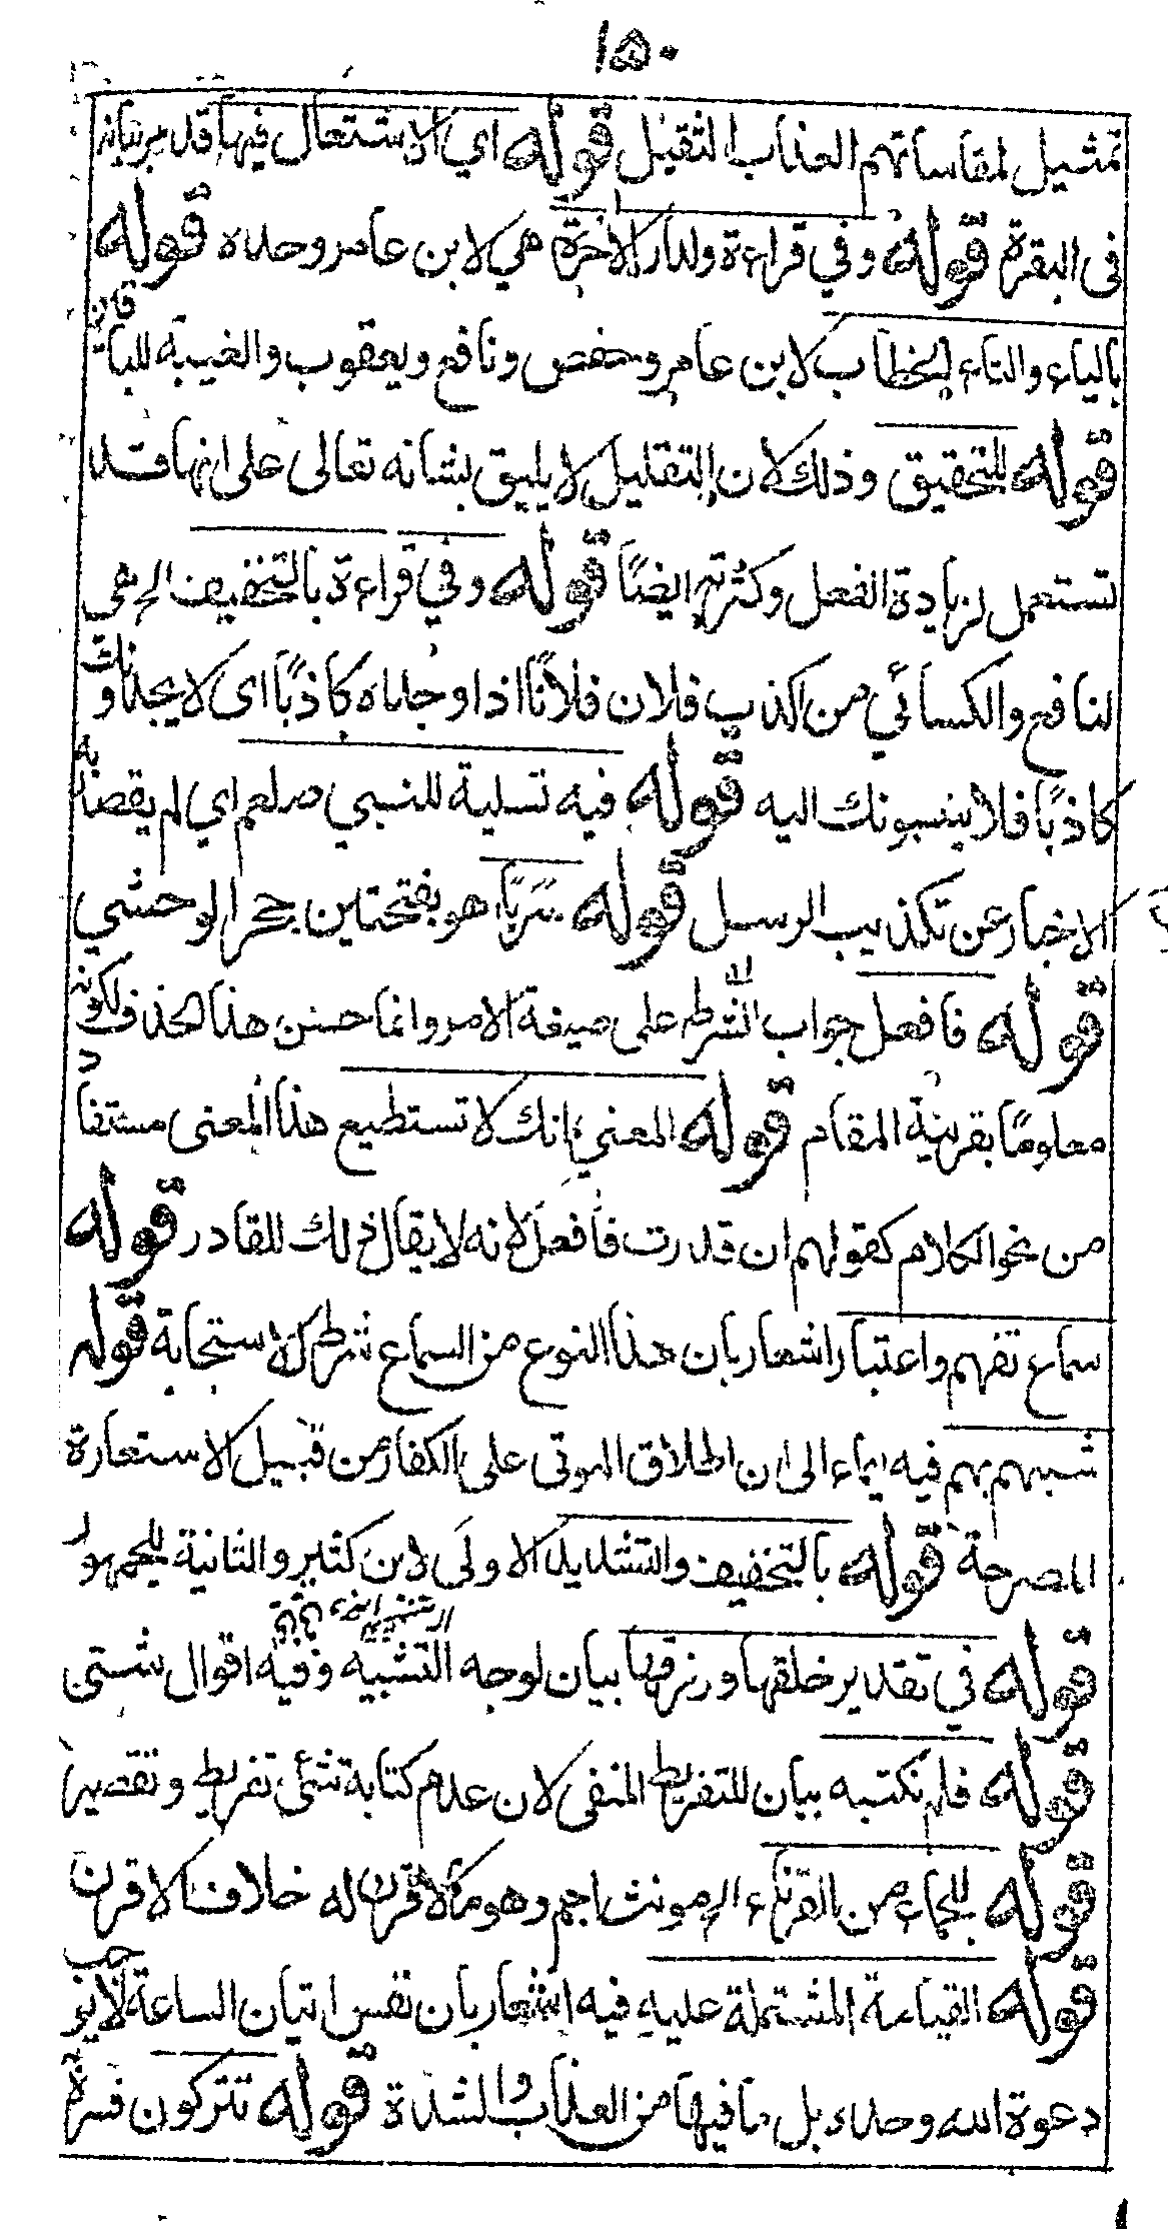 ۱۵۰
تمثيل لمقاساتهم العذاب الثقيل قوله اي الاشتغال فيها قد مر بيانه
فى البقرة قوله وفي قراءة ولدار الاخرة هي لابن عامر وحده قوله
بالياء والتاء الخطاب لابن عامر وحفص ونافع ويعقوب والغيبة للباقين
قوله للتحقيق وذلك لان التقليل لا يليق بشانه تعالى على انها قد
تستعمل لزيادة الفعل وكثرته ايضًا قوله وفي قراءة بالتخفيف الخ هي
لنافع والكسائي من اكذب فلان فلانًا اذا وجده كاذبًا اى لا يجدونك
كاذبًا فلا ينسبونك اليه قوله فيه تسلية للنبي صلعم اي لم يقصد به
الاخبار عن تكذيب الرسل قوله سَرَبًا هو بفتحتين جحر الوحشي
قوله فافعل جواب الشرط على صيغة الامر وانما حسن هذا الحذف لكونه
معلومًا بقرينة المقام قوله المعنى انك لا تستطيع هذا المعنى مستفاد
من نحو الكلام كقولهم ان قدرت فافعل لانه لا يقال ذلك للقادر قوله
سماع تفهم واعتبار اشعار بان هذا النوع من السماع شرط الاستجابة قوله
شبههم بهم فيه ايماء الى ان اطلاق الموتى على الكفار من قبيل الاستعارة
المصرحة قوله بالتخفيف والتشديد الاولى لابن كثير والثانية للجمهور
قوله في تقدير خلقها ورزقها بيان لوجه التشبيه وفيه اقوال شتى
قوله فلم نكتبه بيان للتفريط المنفى لان عدم كتابة شئ تفريط وتقصير
قوله للجماء من القرناء الخ مونث اجم وهو ما لا قرن له خلاف الاقرن
قوله القيامة المشتملة عليه فيه اشعار بان نفس اتيان الساعة لا يوجب
دعوة الله وحده بل ما فيها من العذاب والشدة قوله تتركون فسرة